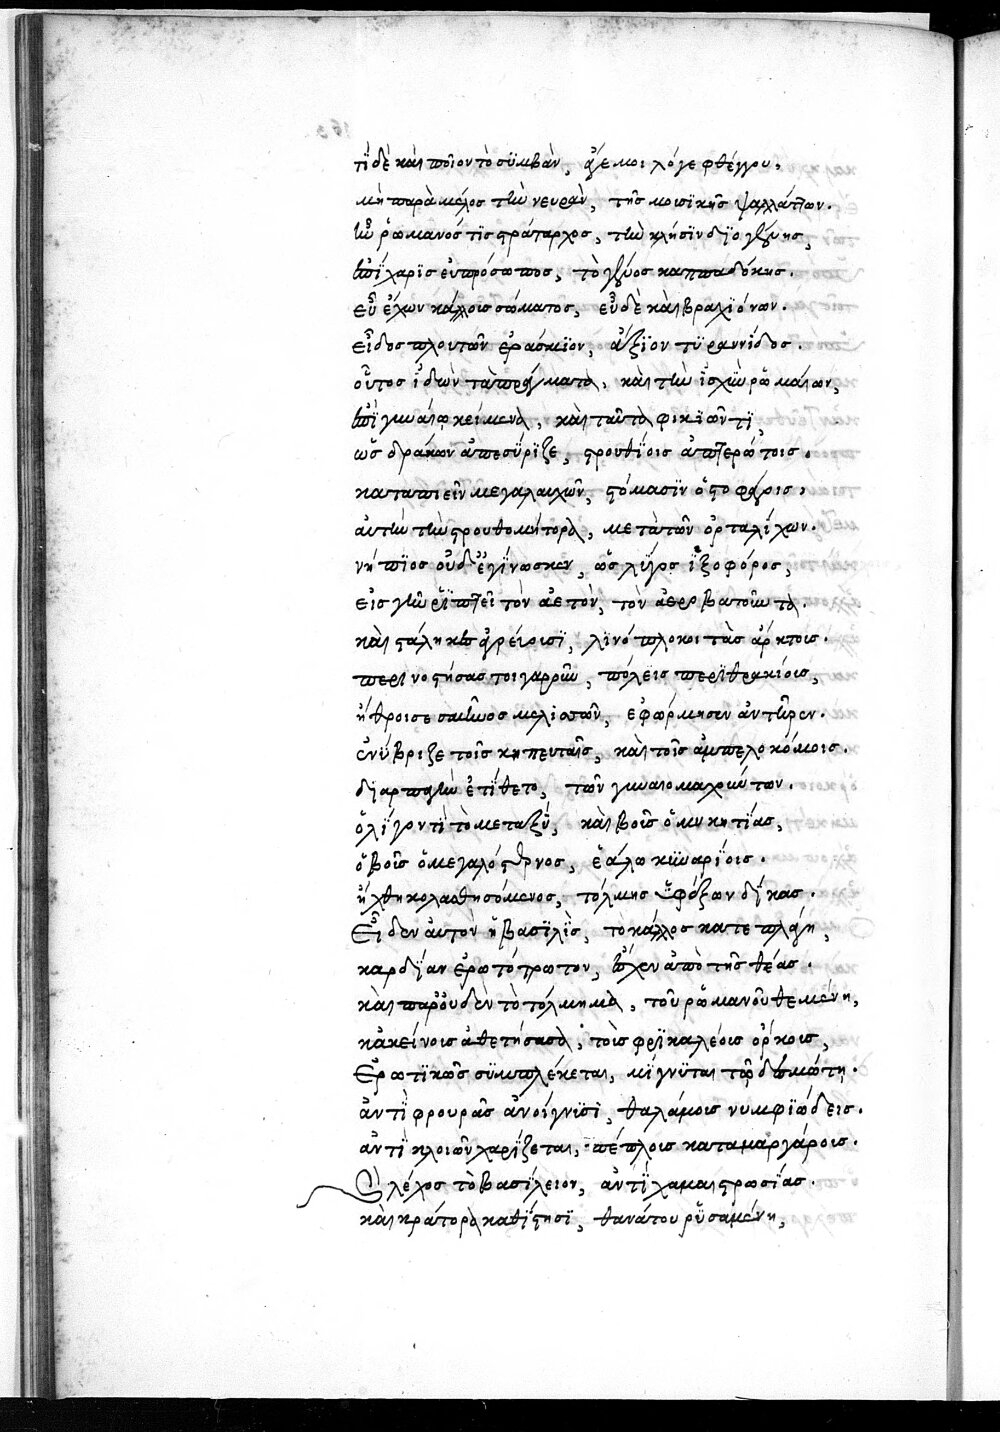 τί δὲ καὶ ποῖον τὸ συμβὰν, ἆγέ μοι λόγε φθέγγου,
μὴ παρὰ μέλος τὴν νευρὰν, τῆς μουσικῆς ψαλλάττων.
ἦν ῥωμανός τις στράταρχος, τὴν κλῆσιν διογένης,
ἐπίχαρις εὐπρόσωπος, τὸ γένος καππαδόκης.
εὖ ἔχων κάλλους σώματος, εὖ δὲ καὶ βραχιόνων.
εἶδος πλουτῶν ἐράσμιον, ἄξιον τυραννίδος.
οὗτος ἰδὼν τὰ πράγματα, καὶ τὴν ἰσχὺν ῥωμαίων,
ἐπὶ γυναίῳ κείμενα, καὶ ταῦτα φρικιῶντι,
ὡς δράκων ἀπεσύριζε, στρουθίοις ἀπτερώτοις.
καταπιεῖν μεγαλαυχῶν, στόμασιν ὀστοφάροις,
αὐτὴν τὴν στρουθομήτορα, μετὰ τῶν ὀρταλίχων.
νήπιος οὐδ' ἐγίνωσκεν, ὡς λύγος ἰξοφόρος,
εἰς γῆν ῥίπτει τὸν ἀετὸν, τὸν ἀεροβατοῦντα.
καὶ στάληκες ἀγρεύουσι, λινόπλοκοι τὰς ἄρκτους.
περινοστήσας τοιγαροῦν, πόλεις περιθρακίους,
ἤθροισε σμῆνος μελισσῶν, ἐφώρμησεν ἀντῆρεν.
ἐνύβριζε τοῖς κηπευταῖς, καὶ τοῖς ἀμπελοκόμοις.
διαρπαγὴν ἐτίθετο, τῶν γυναιομαχούντων.
ὀλίγον τι τὸ μεταξὺ, καὶ βοῦς ὁ μυκητίας,
ὁ βοῦς ὁ μεγαλόστερνος, ἑάλω κυναρίοις.
ἤχθη κολασθησόμενος, τόλμης ὑφέξων δίκας.
Εἶδεν αὐτὸν ἡ βασιλὶς, τὸ κάλλος κατεπλάγη,
καρδίαν ἐρωτότρωτον, ἔσχεν ἀπὸ τῆς θέας.
καὶ παρ' οὐδὲν τὸ τόλμημα, τοῦ ῥωμανοῦ θεμένη,
κἀκείνους ἀθετήσασα, τοὺς φρικαλέους ὅρκους,
Ἐρωτικῶς συμπλέκεται, μίγνυται τῷ δεσμώτῃ.
ἀντὶ φρουρᾶς ἀνοίγνυσι, θαλάμους νυμφιώδεις.
ἀντὶ κλοιῶν χαρίζεται, πέπλους καταμαργάρους.
Ἐς λέχος τὸ βασίλειον, ἀντὶ χαμαιστρωσίας.
καὶ κράτορα καθίστησι, θανάτου ῥυσαμένη,